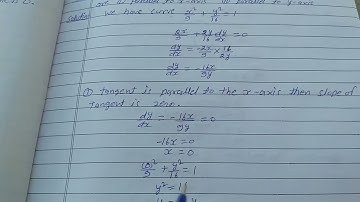 (i) parallel to x-axis (ii) parallel to y-axis
Solution We have curve x²/9 + y²/16 = 1
2x/9 + 2y/16 dy/dx = 0
dy/dx = -2x/9 × 16/2y
dy/dx = -16x/9y
① Tangent is parallel to the x-axis then slope of
tangent is zero.
dy/dx = -16x/9y = 0
-16x = 0
x = 0
(0)²/9 + y²/16 = 1
y² = 1